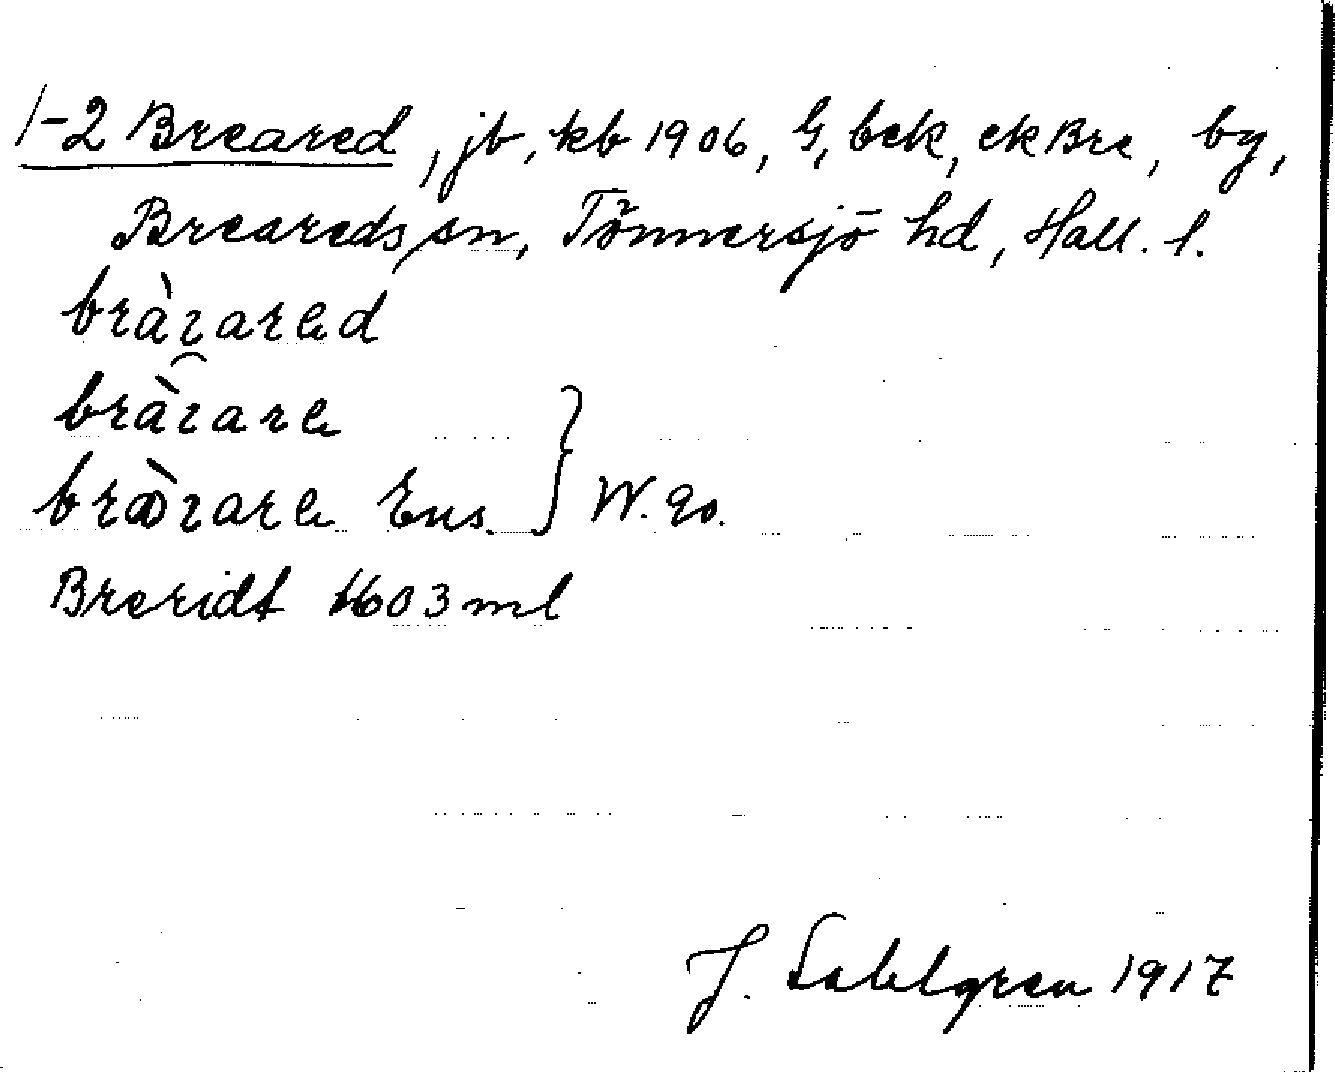 1-2 Breared, jb, kb 1906, G, bek, ek Bre, by,
Breareds sn, Tönnersjö hd, Hall. l.
bràɿared
bràɿare
bròɿare Ens. } W. Zo.
Breridt 1603 ml
J. Sahlgren 1917